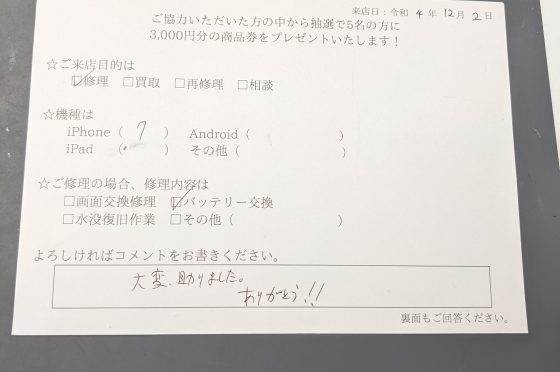 来店日：令和 4 年 12月 2日
ご協力いただいた方の中から抽選で5名の方に
3,000円分の商品券をプレゼントいたします！
☆ご来店目的は
☑修理 □買取 □再修理 □相談
☆機種は
iPhone（ 7 ） Android（ ）
iPad （ ） その他（ ）
☆ご修理の場合、修理内容は
□画面交換修理 ☑バッテリー交換
□水没復旧作業 □その他（ ）
よろしければコメントをお書きください。
大変、助りました。
ありがとう!!
裏面もご回答ください。